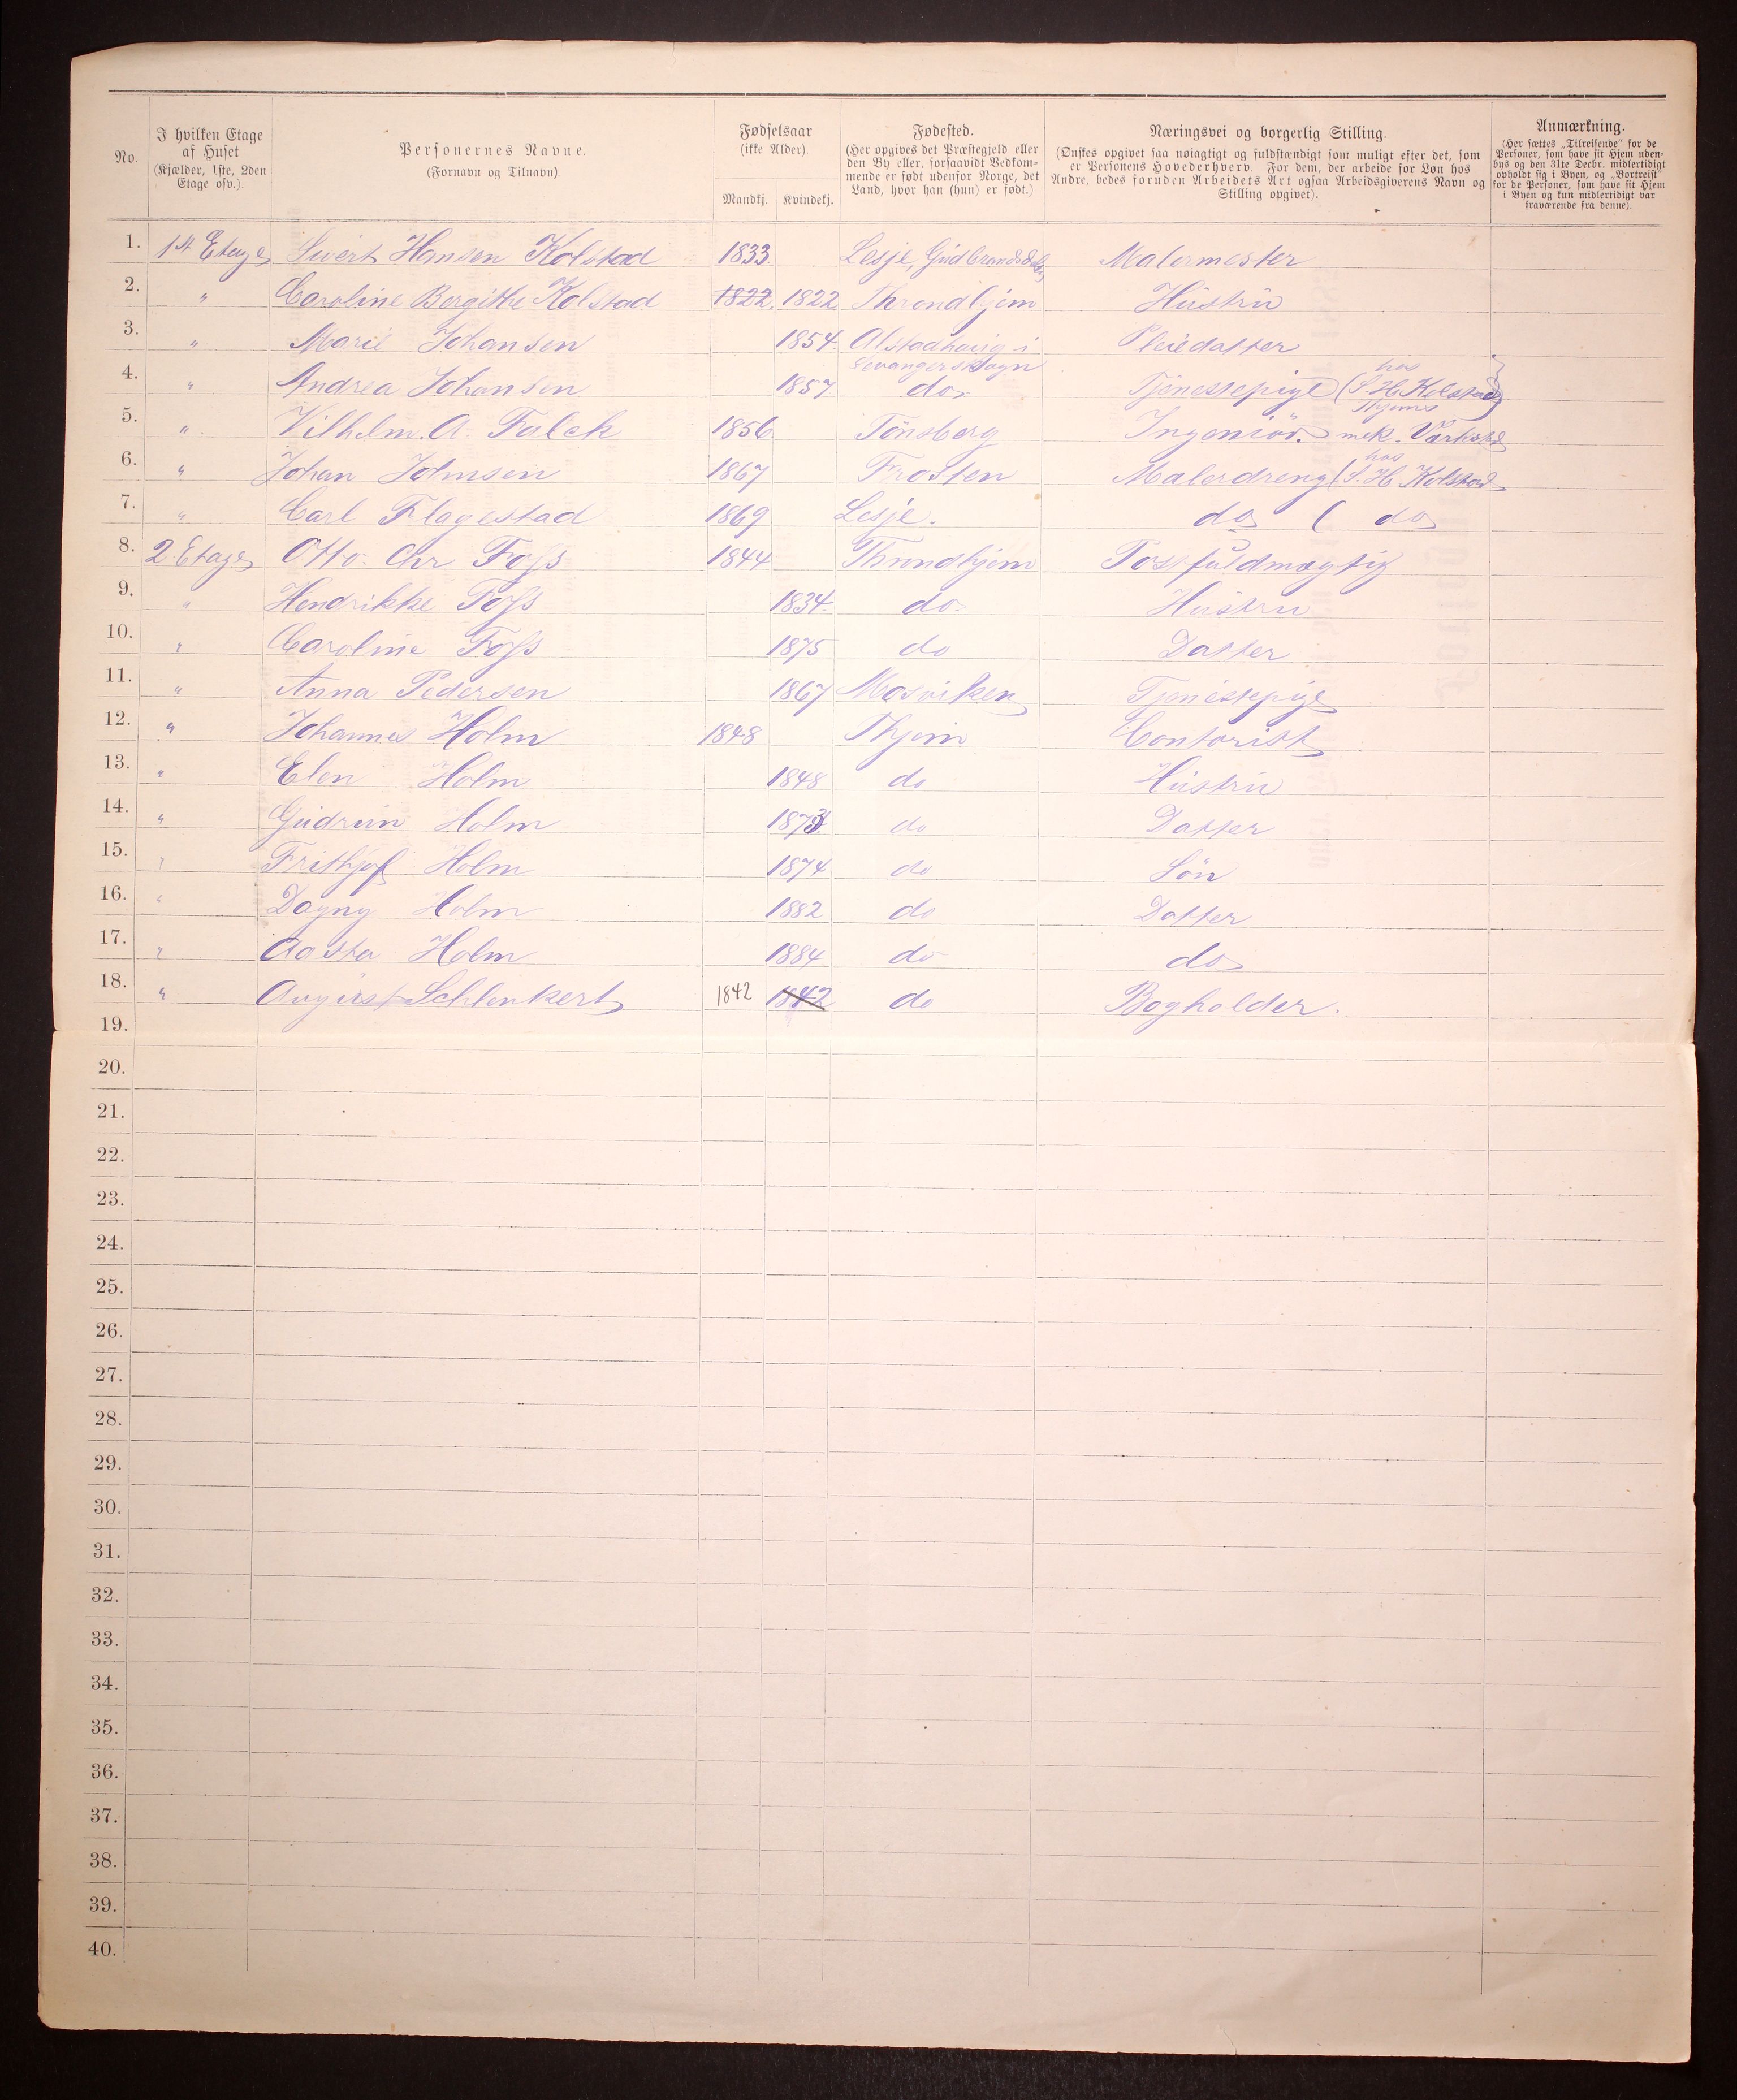 No.
I hvilken Etage af Huset (Kjælder, 1ste, 2den Etage osv.).
Personernes Navne. (Fornavn og Tilnavn).
Fødselsaar (ikke Alder).
Mandkj. Kvindekj.
Fødested. (Her opgives det Præstegjeld eller den By eller, forsaavidt Vedkommende er født udenfor Norge, det Land, hvor han (hun) er født.)
Næringsvei og borgerlig Stilling. (Ønskes opgivet saa nøiagtigt og fuldstændigt som muligt efter det, som er Personens Hovederhverv. For dem, der arbeide for Løn hos Andre, bedes foruden Arbeidets Art ogsaa Arbeidsgiverens Navn og Stilling opgivet).
Anmærkning. (Her sættes „Tilreisende" for de Personer, som have sit Hjem udenbys og den 31te Decbr. midlertidigt opholdt sig i Byen, og „Bortreist" for de Personer, som have sit Hjem i Byen og kun midlertidigt var fraværende fra denne).
1. 1st Etage Sivert Hansen Kolstad 1833. Lesje, Gudbrandsdalen Malermester
2. " Caroline Bergithe Kolstad 1822. 1822 Throndhjem Hustru
3. " Marie Johansen 1854. Alstadhaug i Levangers Sogn Pleiedatter
4. " Andrea Johansen 1857 do. Tjenestepige (hos S. H. Kolstad)
5. " Vilhelm. A. Falck 1856 Tönsberg Ingeniör. Thjems mek. Værksted
6. " Johan Johnsen 1867 Frosten Malerdreng (hos S. H. Kolstad
7. " Carl Flagestad 1869 Lesje. do ( do
8. 2 Etage Otto. Chr Foss 1844 Throndhjem Postfuldmægtig
9. " Hendrikke Foss 1834. do. Hustru
10. " Caroline Foss 1875 do Datter
11. " Anna Pedersen 1867 Mosviken Tjenestepige
12. " Johannes Holm 1848 Thjem Contorist
13. " Elen Holm 1848 do Hustru
14. " Gudrun Holm 1873 do Datter
15. " Frithjof Holm 1874 do Sön
16. " Dagny Holm 1882 do Datter
17. " Aasta Holm 1884 do do
18. " August Schlenkert 1842 1842 do Bogholder.
19.
20.
21.
22.
23.
24.
25.
26.
27.
28.
29.
30.
31.
32.
33.
34.
35.
36.
37.
38.
39.
40.